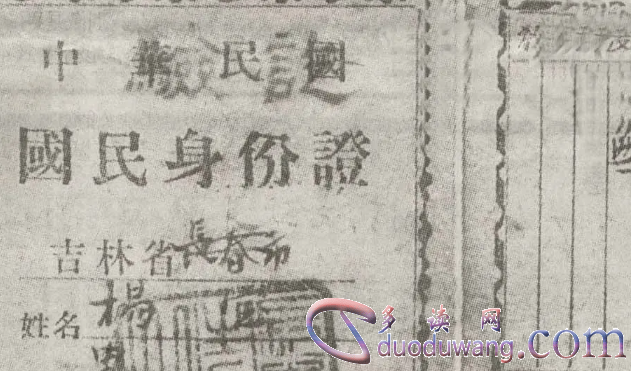 中華民國
驗證
國民身份證
吉林省長春市
姓名 楊
多读网
duoduwang.com